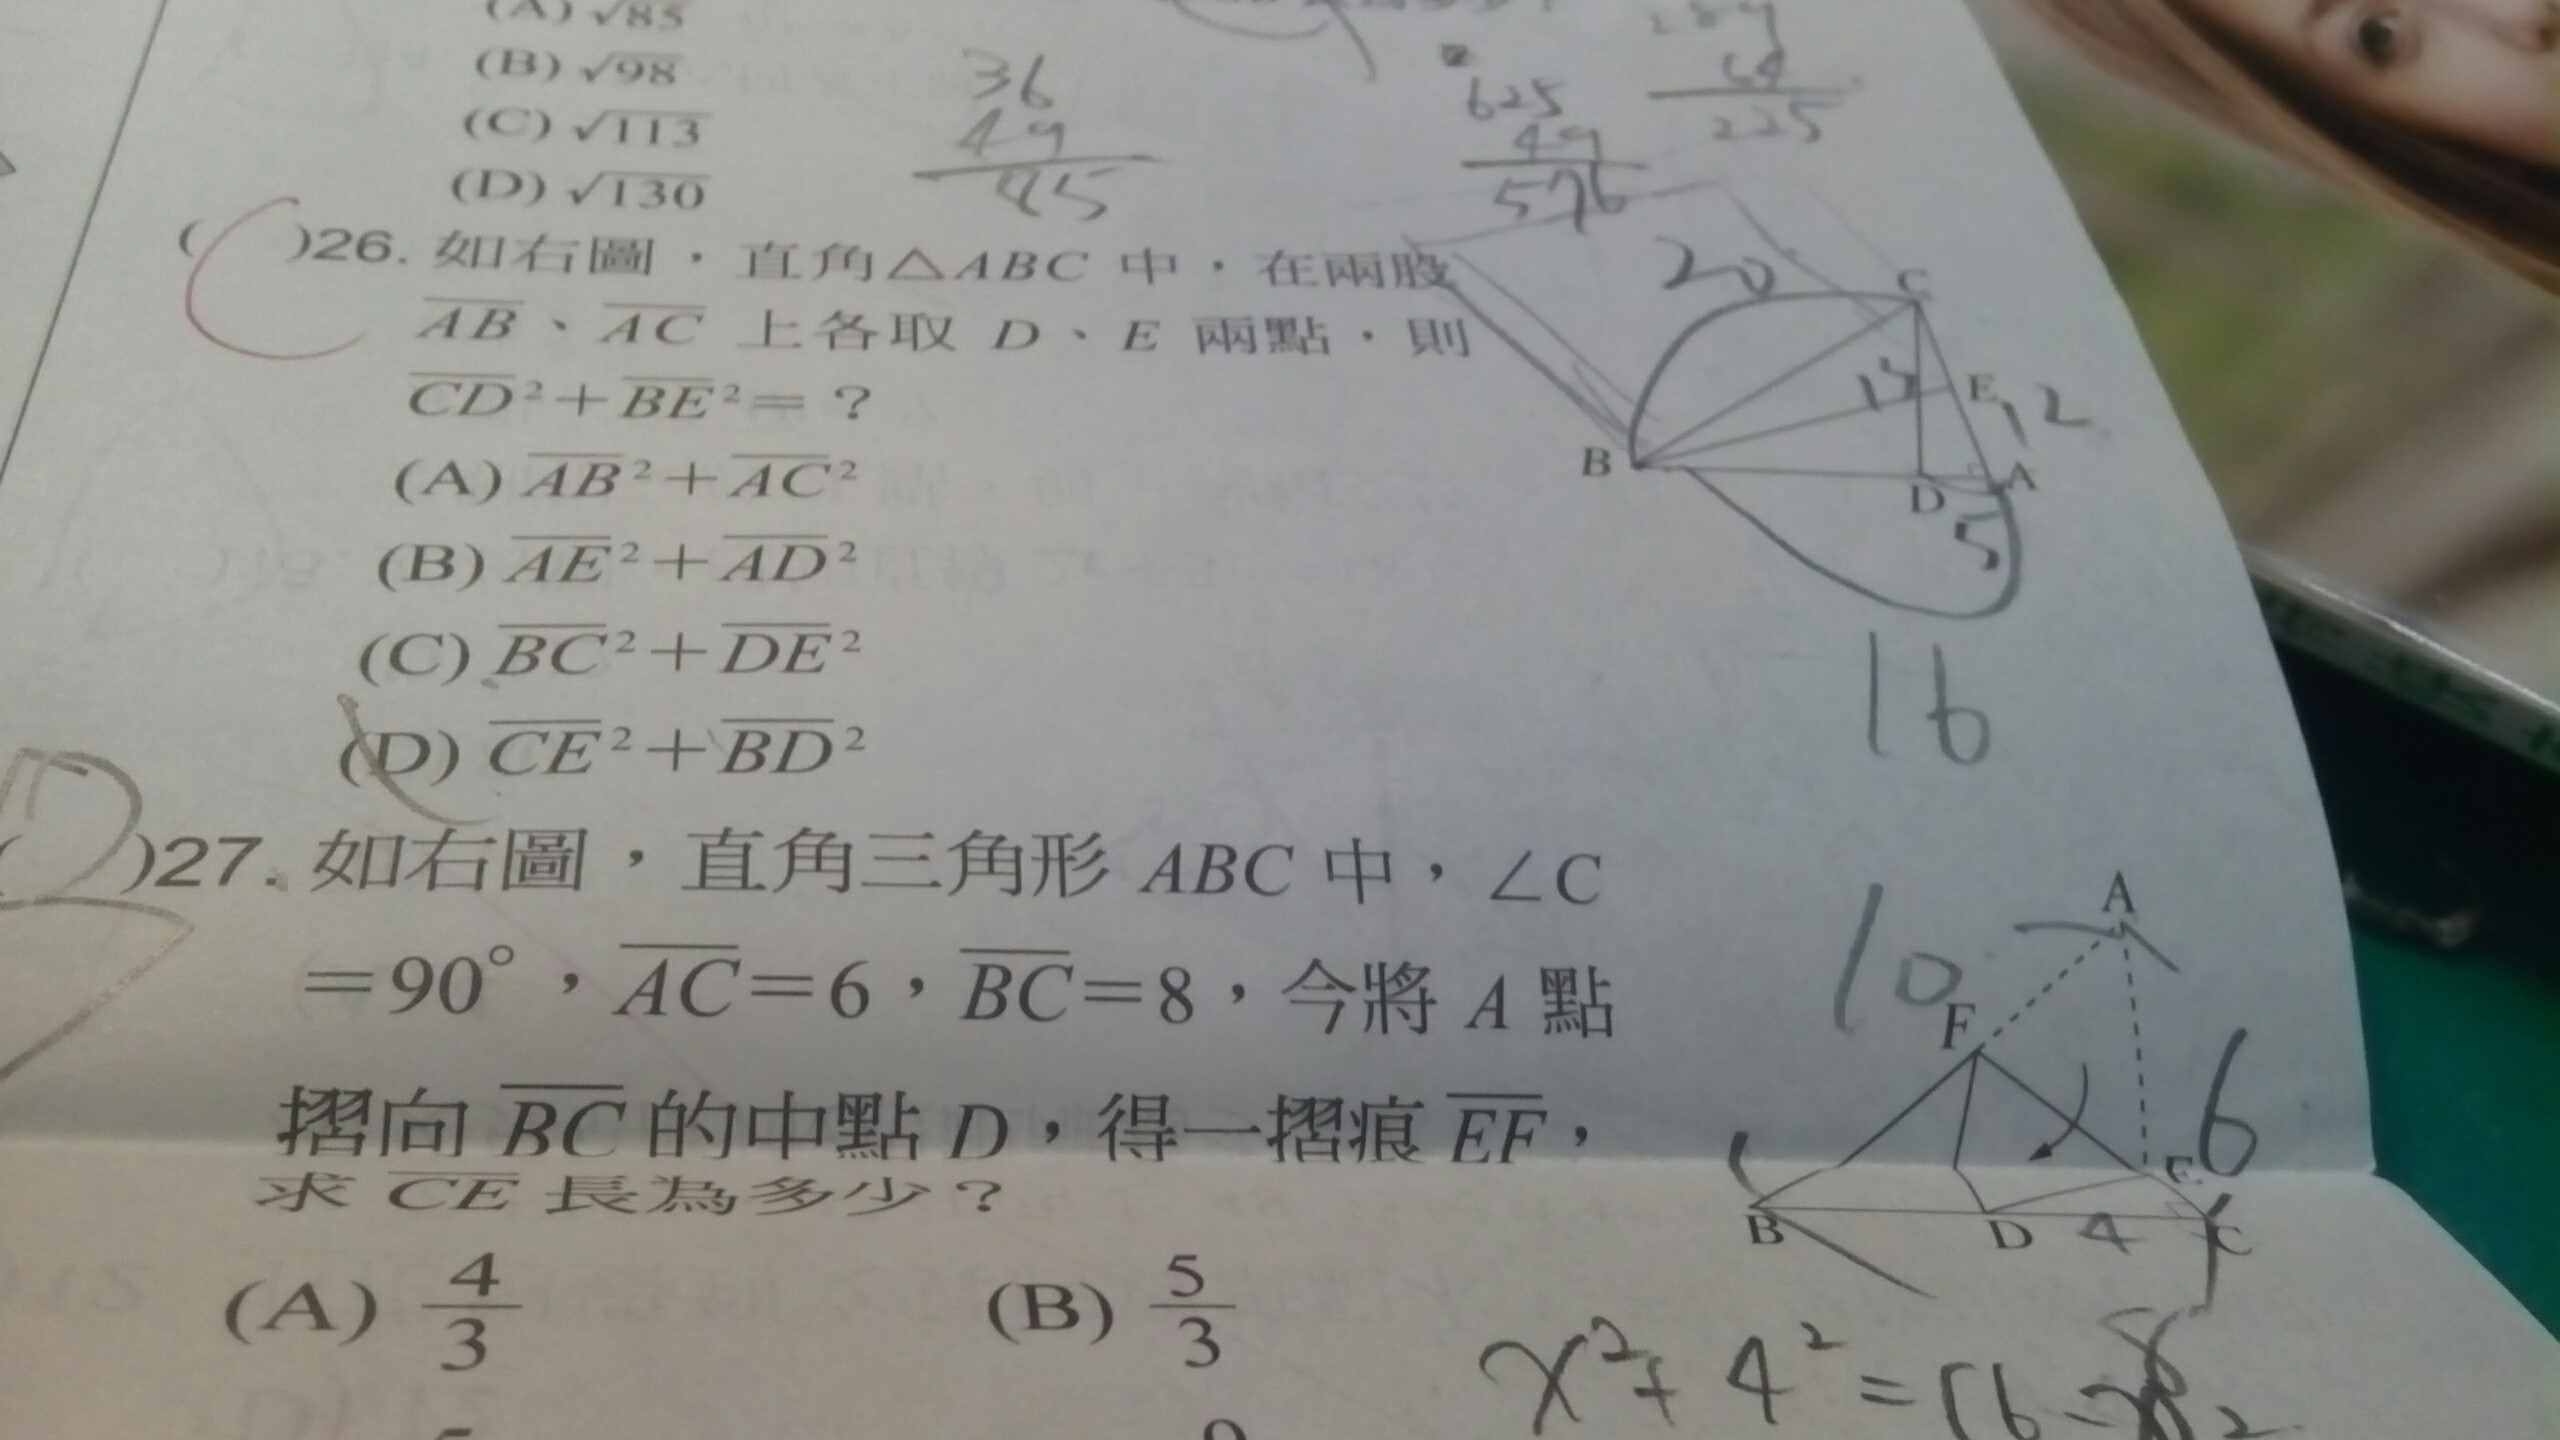 (A) √85
(B) √98
(C) √113
(D) √130
36
49
85
625
49
576
64
225
( )26. 如右圖，直角△ABC 中，在兩股
AB、AC 上各取 D、E 兩點，則
CD²+BE²=？
(A) AB²+AC²
(B) AE²+AD²
(C) BC²+DE²
(D) CE²+BD²
20
C
13
E
12
B
D
A
5
16
( )27. 如右圖，直角三角形 ABC 中，∠C
=90°，AC=6，BC=8，今將 A 點
摺向 BC 的中點 D，得一摺痕 EF，
求 CE 長為多少？
(A) 4/3
(B) 5/3
A
10
F
6
E
B
D
4
C
8
x²+4²=(6-x)²